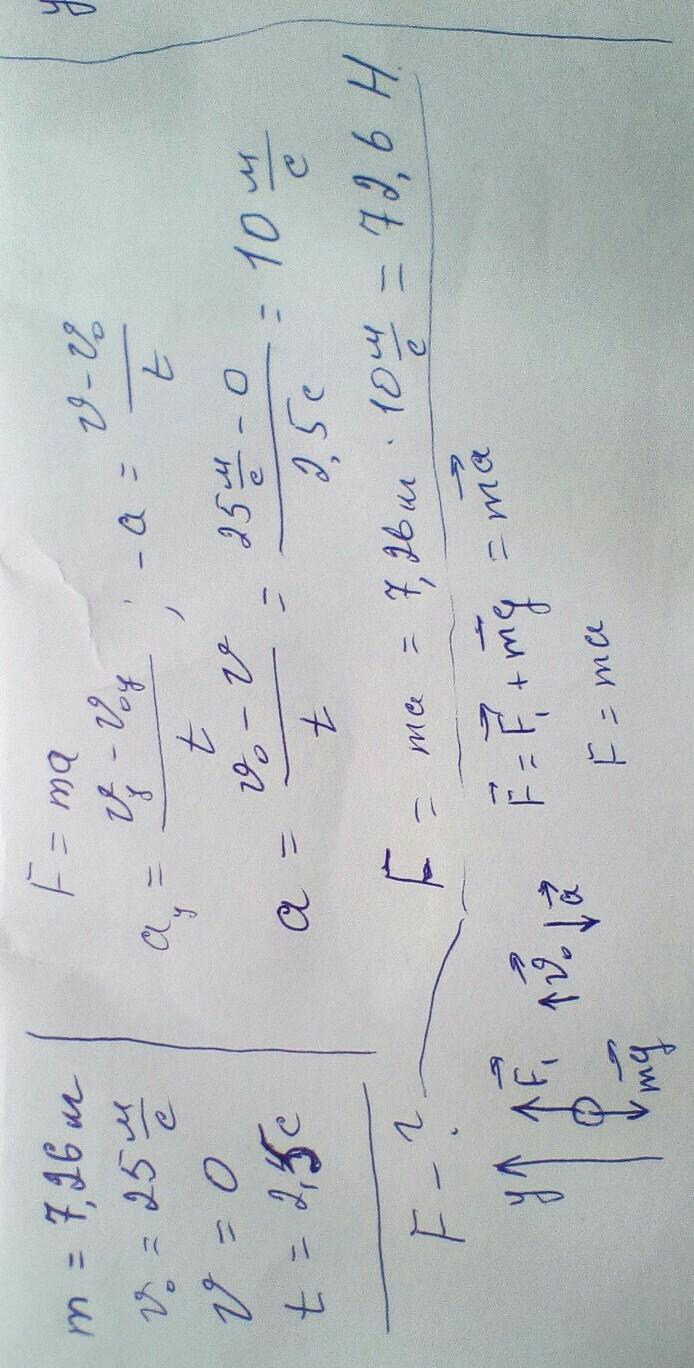 m = 7,26 кг
v₀ = 25 м/с
v = 0
t = 2,5 с
F - ?
F = ma
a_y = (v_y - v_0y)/t ; -a = (v - v₀)/t
a = (v₀ - v)/t = (25 м/с - 0)/2,5 с = 10 м/с
F = ma = 7,26 кг · 10 м/с = 72,6 Н.
y F⃗₁ v⃗₀ a⃗
mg⃗
F⃗ = F⃗₁ + mg⃗ = ma⃗
F = ma